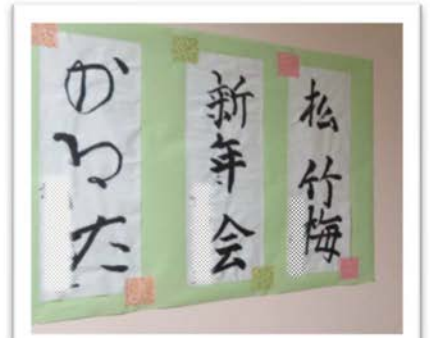 松竹梅
新年会
かるた